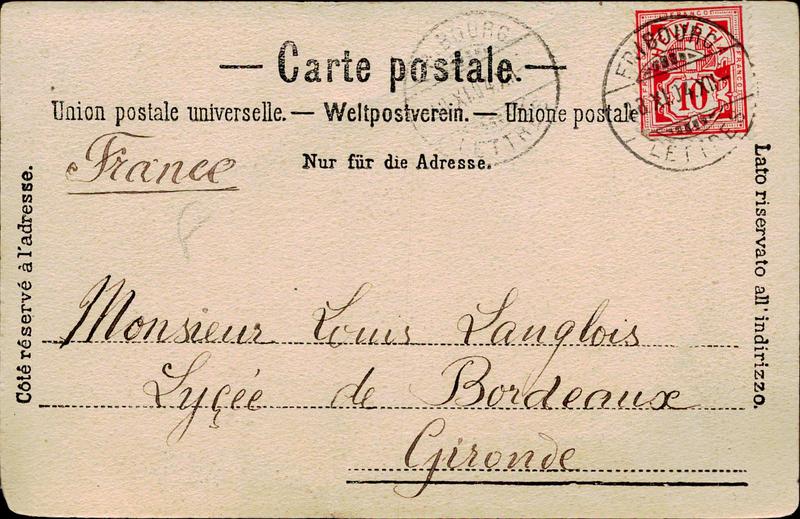 Carte postale.
Union postale universelle. — Weltpostverein. — Unione postale
Nur für die Adresse.
France
Côté réservé à l'adresse.
Lato riservato all'indirizzo.
Monsieur Louis Langlois
Lyçée de Bordeaux
Gironde
FRIBOURG
LETTRES
10
FRANCO